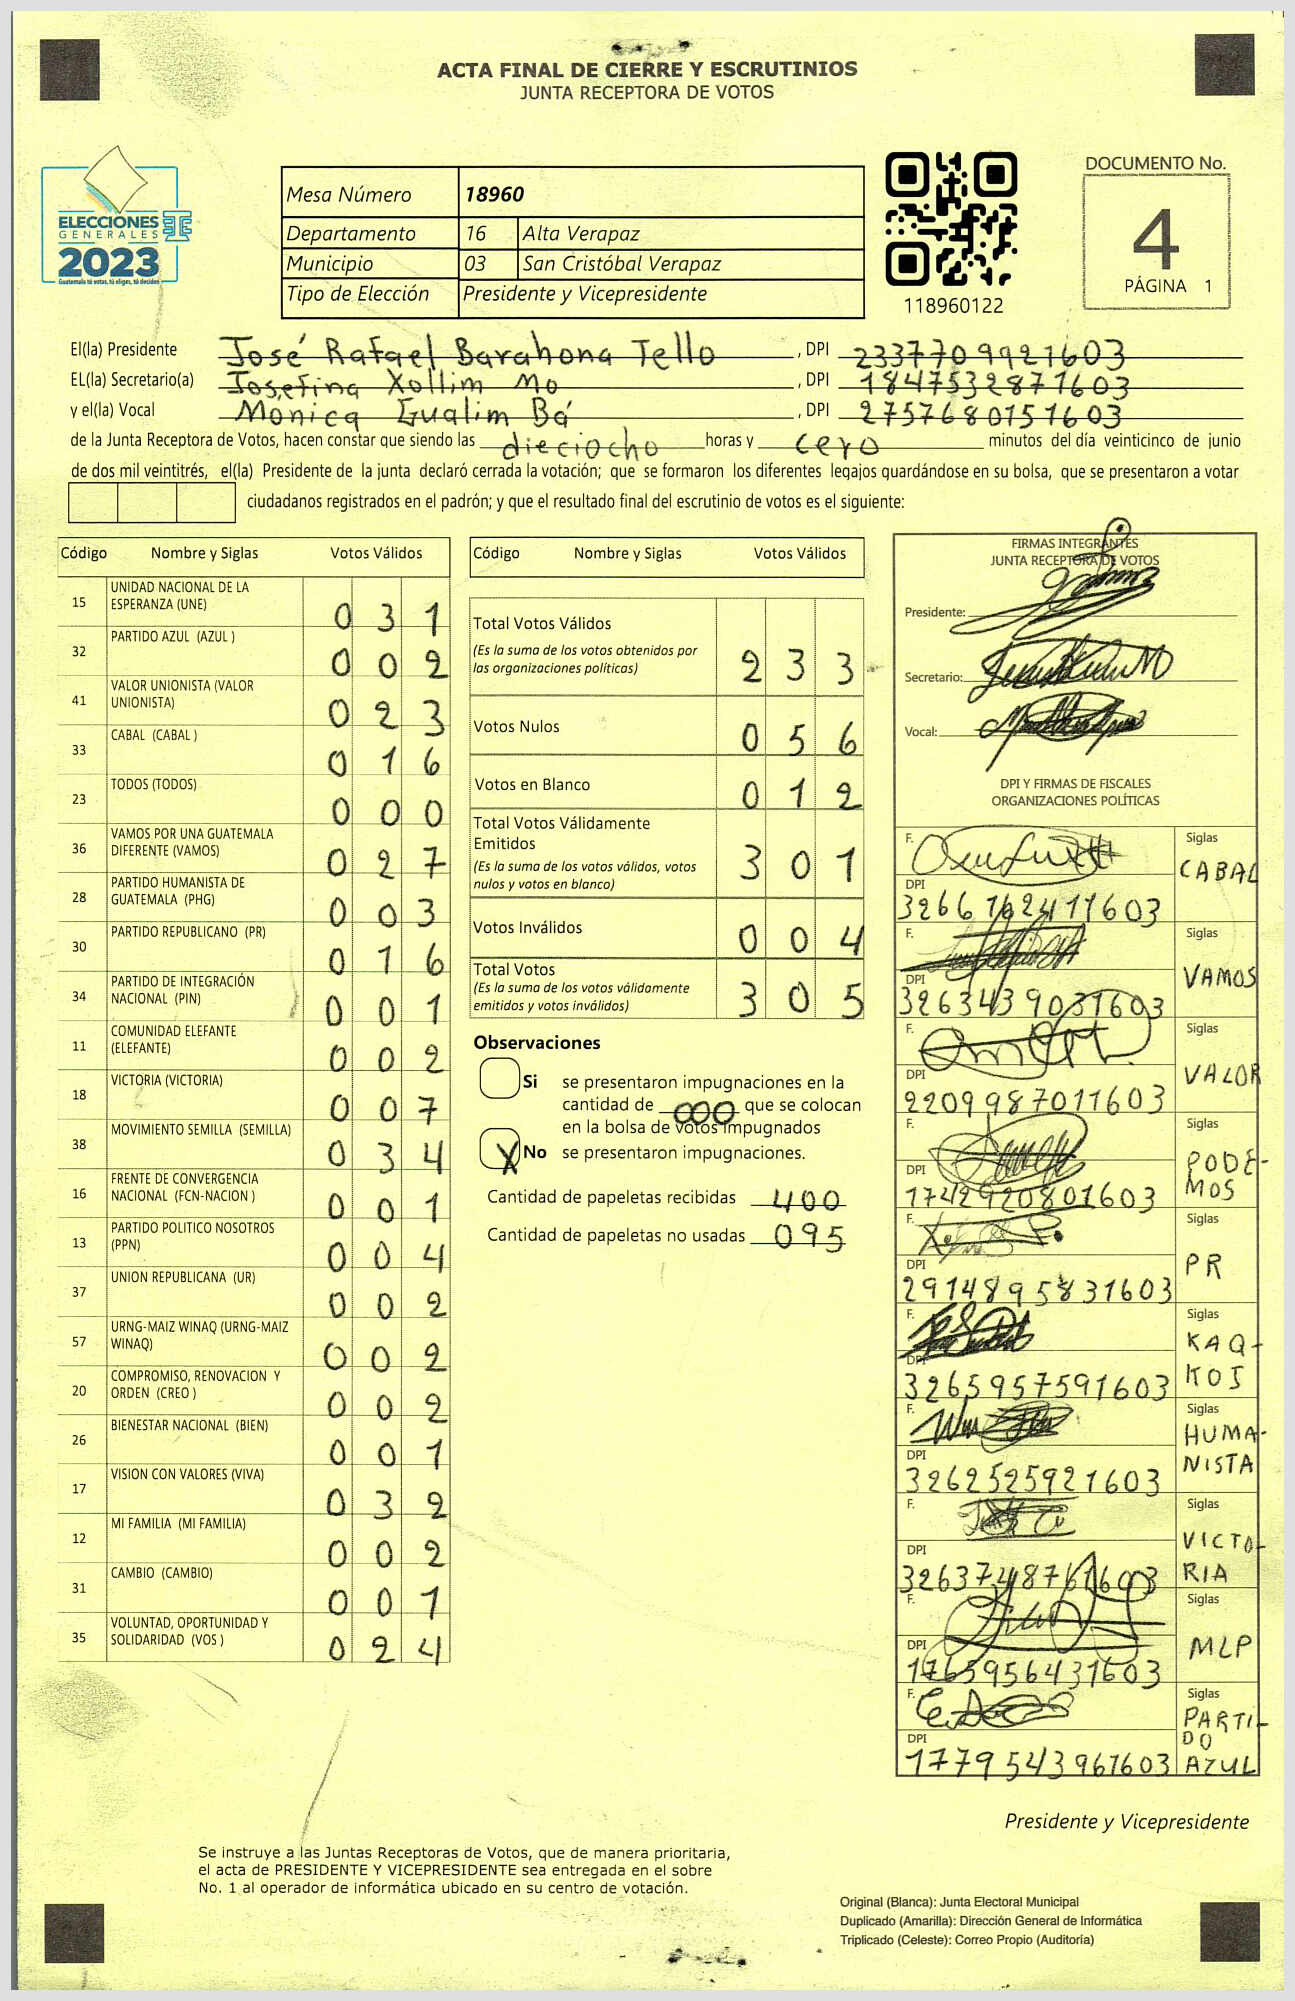 ACTA FINAL DE CIERRE Y ESCRUTINIOS
JUNTA RECEPTORA DE VOTOS
ELECCIONES
GENERALES
2023
Guatemala tú votas, tú eliges, tú decides
Mesa Número 18960
Departamento 16 Alta Verapaz
Municipio 03 San Cristóbal Verapaz
Tipo de Elección Presidente y Vicepresidente
118960122
DOCUMENTO No.
4
PÁGINA 1
El(la) Presidente José Rafael Barahona Tello, DPI 2337709921603
EL(la) Secretario(a) Josefina Xollim Mo, DPI 1847532871603
y el(la) Vocal Monica Gualim Bá, DPI 2757680151603
de la Junta Receptora de Votos, hacen constar que siendo las dieciocho horas y cero minutos del día veinticinco de junio
de dos mil veintitrés, el(la) Presidente de la junta declaró cerrada la votación; que se formaron los diferentes legajos guardándose en su bolsa, que se presentaron a votar
ciudadanos registrados en el padrón; y que el resultado final del escrutinio de votos es el siguiente:
Código Nombre y Siglas Votos Válidos
15 UNIDAD NACIONAL DE LA ESPERANZA (UNE) 031
32 PARTIDO AZUL (AZUL ) 002
41 VALOR UNIONISTA (VALOR UNIONISTA) 023
33 CABAL (CABAL ) 016
23 TODOS (TODOS) 000
36 VAMOS POR UNA GUATEMALA DIFERENTE (VAMOS) 027
28 PARTIDO HUMANISTA DE GUATEMALA (PHG) 003
30 PARTIDO REPUBLICANO (PR) 016
34 PARTIDO DE INTEGRACIÓN NACIONAL (PIN) 001
11 COMUNIDAD ELEFANTE (ELEFANTE) 002
18 VICTORIA (VICTORIA) 007
38 MOVIMIENTO SEMILLA (SEMILLA) 034
16 FRENTE DE CONVERGENCIA NACIONAL (FCN-NACION ) 001
13 PARTIDO POLITICO NOSOTROS (PPN) 004
37 UNION REPUBLICANA (UR) 002
57 URNG-MAIZ WINAQ (URNG-MAIZ WINAQ) 002
20 COMPROMISO, RENOVACION Y ORDEN (CREO ) 002
26 BIENESTAR NACIONAL (BIEN) 001
17 VISION CON VALORES (VIVA) 032
12 MI FAMILIA (MI FAMILIA) 002
31 CAMBIO (CAMBIO) 001
35 VOLUNTAD, OPORTUNIDAD Y SOLIDARIDAD (VOS ) 024
Código Nombre y Siglas Votos Válidos
Total Votos Válidos 233
(Es la suma de los votos obtenidos por
las organizaciones políticas)
Votos Nulos 056
Votos en Blanco 012
Total Votos Válidamente
Emitidos 301
(Es la suma de los votos válidos, votos
nulos y votos en blanco)
Votos Inválidos 004
Total Votos 305
(Es la suma de los votos válidamente
emitidos y votos inválidos)
Observaciones
Si se presentaron impugnaciones en la
cantidad de 000 que se colocan
en la bolsa de votos impugnados
X No se presentaron impugnaciones.
Cantidad de papeletas recibidas 400
Cantidad de papeletas no usadas 095
FIRMAS INTEGRANTES
JUNTA RECEPTORA DE VOTOS
Presidente:
Secretario:
Vocal:
DPI Y FIRMAS DE FISCALES
ORGANIZACIONES POLÍTICAS
F. Siglas CABAL
DPI 3266162411603
F. Siglas VAMOS
DPI 3263439031603
F. Siglas VALOR
DPI 2209987011603
F. Siglas PODE-
MOS
DPI 1742920801603
F. Siglas PR
DPI 2914895831603
F. Siglas KAQ-
KOJ
DPI 3265957591603
F. Siglas HUMA-
NISTA
DPI 3262525921603
F. Siglas VICTO-
RIA
DPI 3263748761603
F. Siglas MLP
DPI 1765956431603
F. Siglas PARTI-
DO
AZUL
DPI 1779543961603
Presidente y Vicepresidente
Se instruye a las Juntas Receptoras de Votos, que de manera prioritaria,
el acta de PRESIDENTE Y VICEPRESIDENTE sea entregada en el sobre
No. 1 al operador de informática ubicado en su centro de votación.
Original (Blanca): Junta Electoral Municipal
Duplicado (Amarilla): Dirección General de Informática
Triplicado (Celeste): Correo Propio (Auditoría)